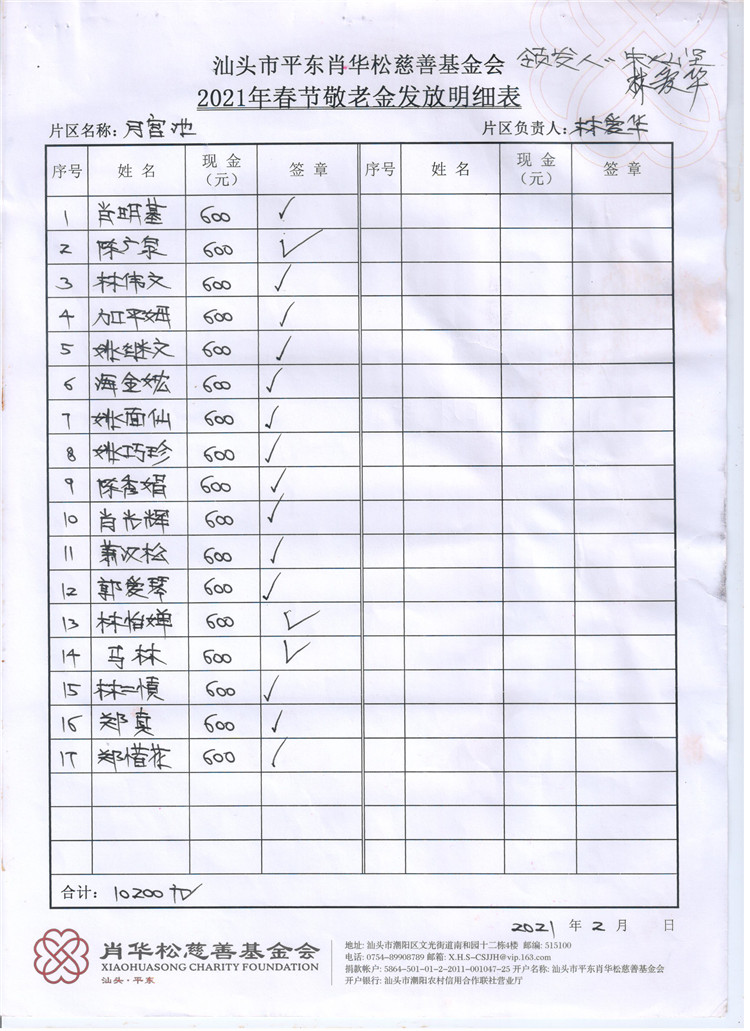 汕头市平东肖华松慈善基金会
颁发人:
林爱华
2021年春节敬老金发放明细表
片区名称: 月宫池 片区负责人: 林爱华
序号 姓名 现金(元) 签章 序号 姓名 现金(元) 签章
1 肖明基 600 ✓
2 陈广泉 600 ✓
3 林伟文 600 ✓
4 加平姆 600 ✓
5 姚继文 600 ✓
6 海金 600 ✓
7 姚面仙 600 ✓
8 姚巧珍 600 ✓
9 陈香娟 600 ✓
10 肖光辉 600 ✓
11 萧汉松 600 ✓
12 郭爱琴 600 ✓
13 林怡婵 600 ✓
14 马林 600 ✓
15 林二慎 600 ✓
16 郑真 600 ✓
17 郑惜花 600 ✓
合计: 10200
2021 年 2 月 日
肖华松慈善基金会
XIAOHUASONG CHARITY FOUNDATION
汕头·平东
地址: 汕头市潮阳区文光街道南和园十二栋4楼 邮编: 515100
电话: 0754-89908789 邮箱: X.H.S-CSJJH@vip.163.com
捐款帐户: 5864-501-01-2-2011-001047-25 开户名称: 汕头市平东肖华松慈善基金会
开户银行: 汕头市潮阳农村信用合作联社营业厅